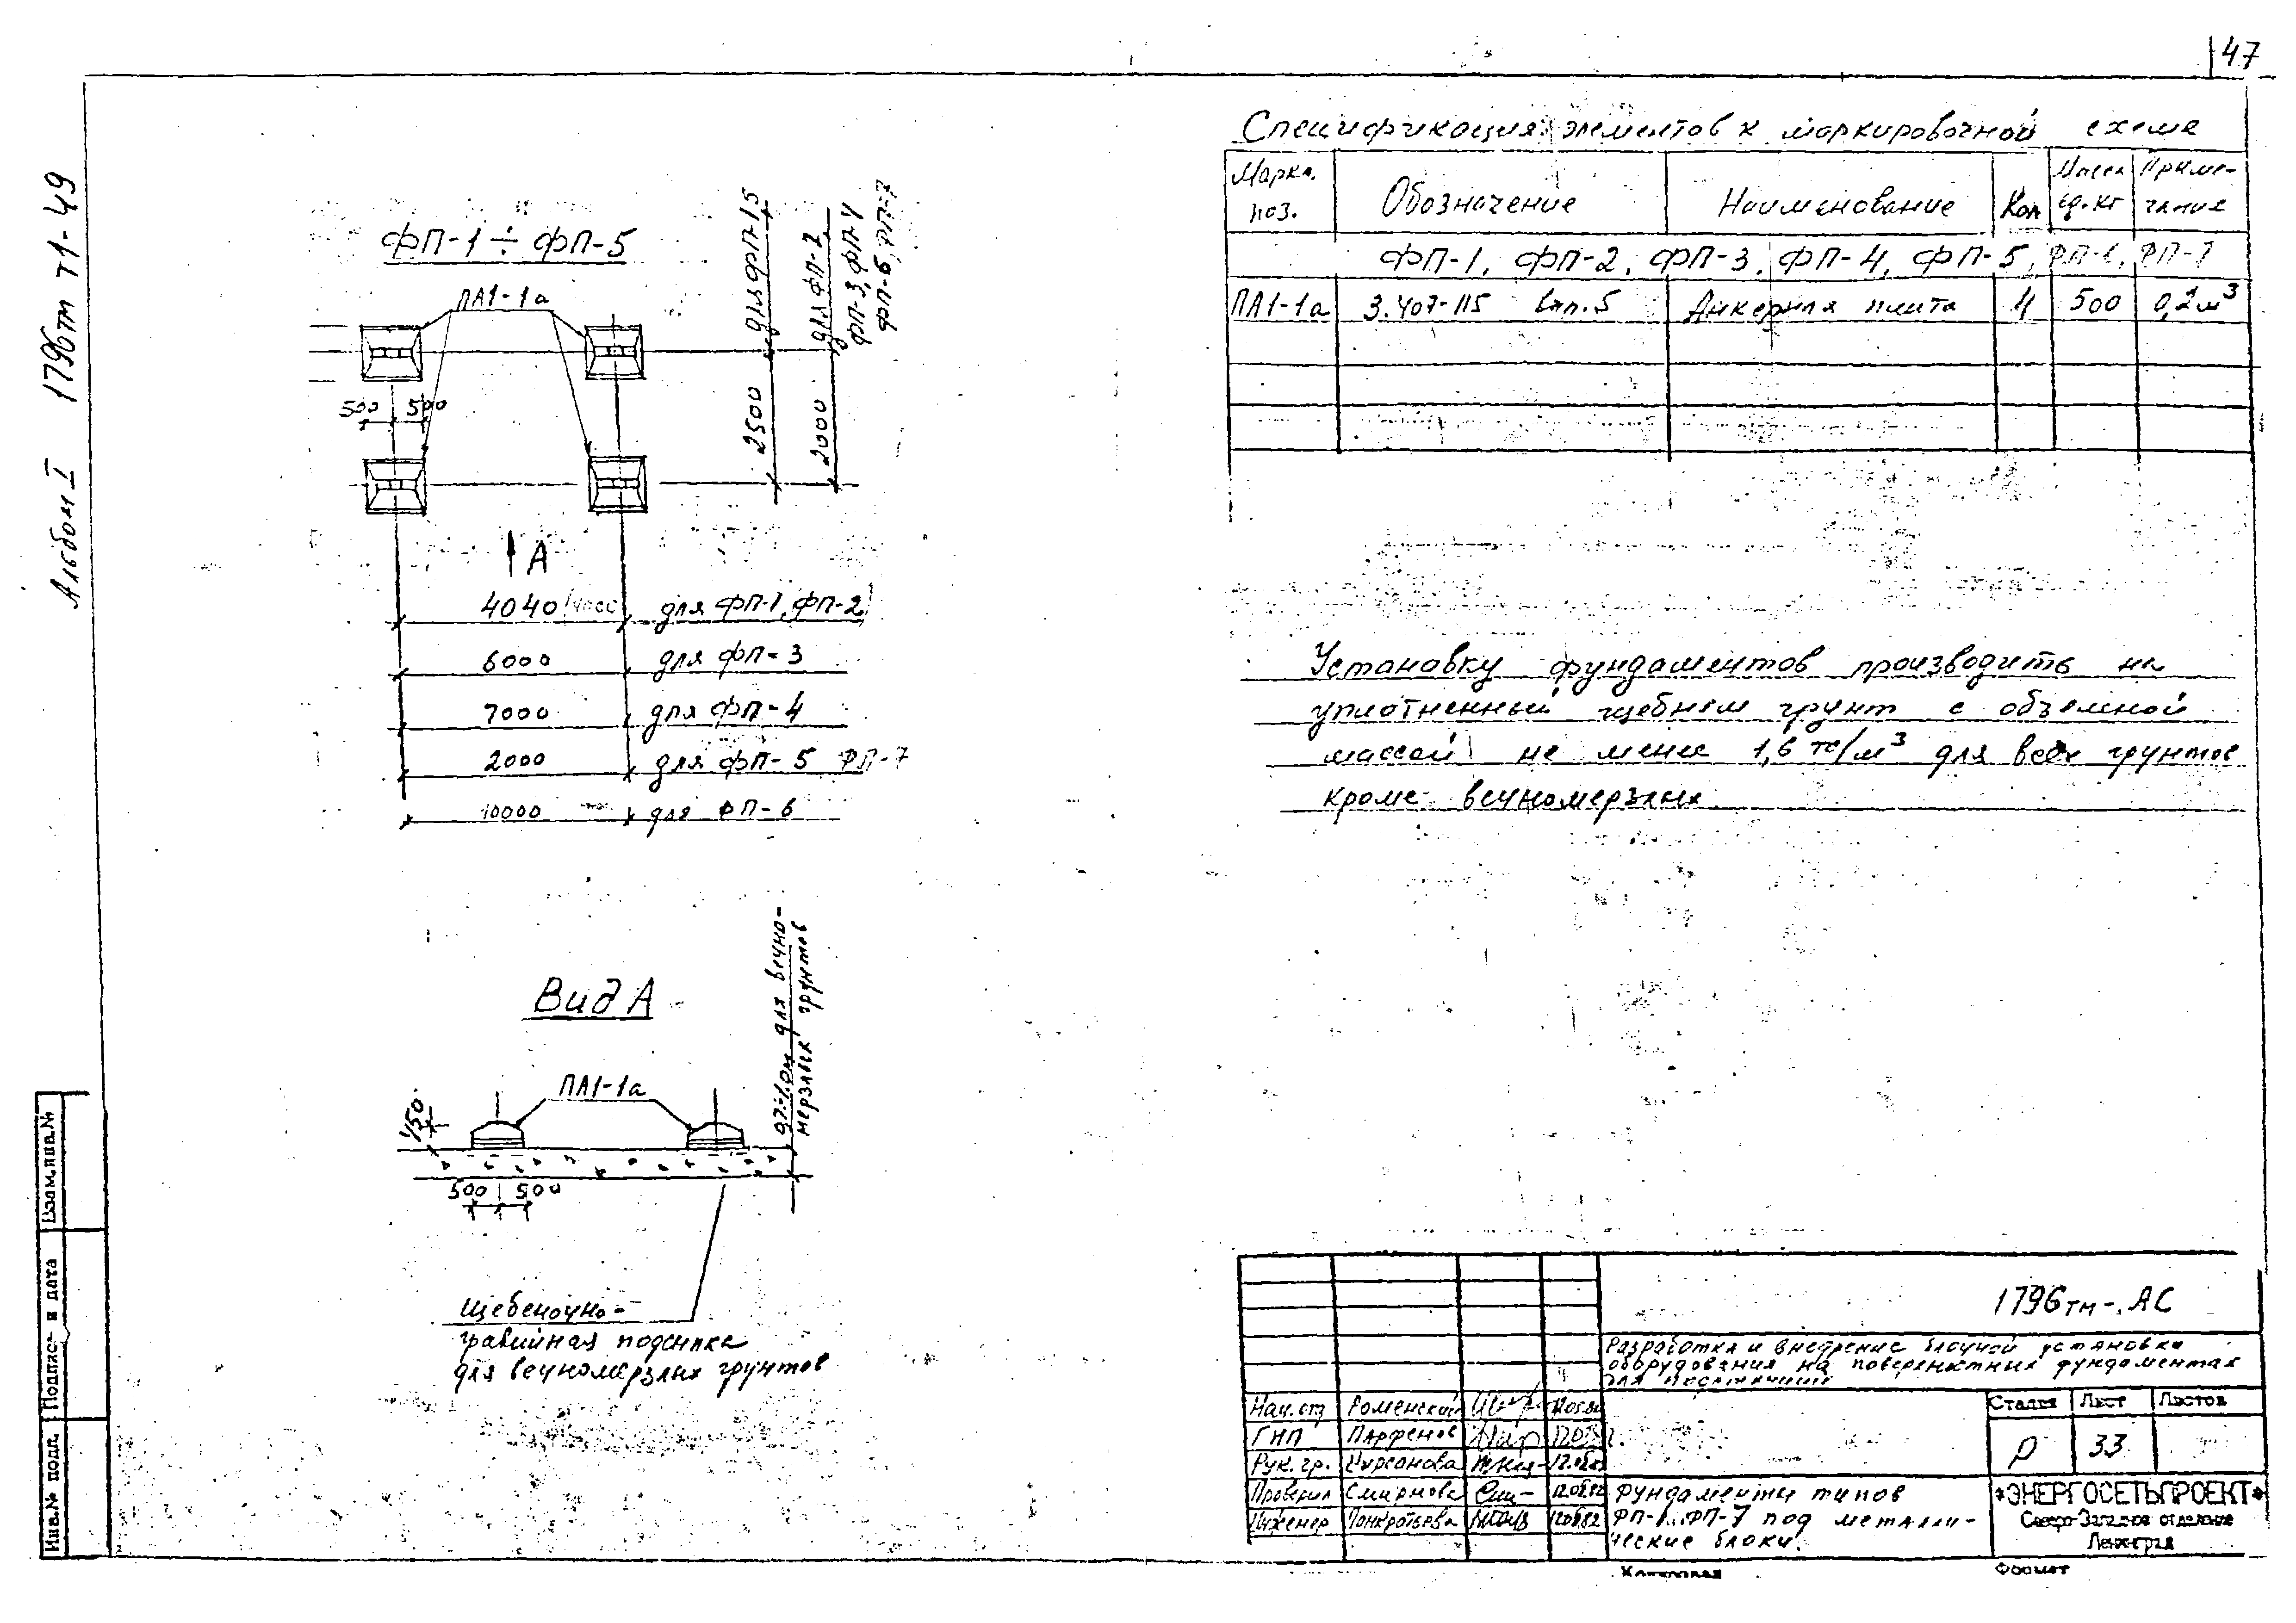 47
Альбом I 1796тм Т1-49
ФП-1 ÷ ФП-5
ПА1-1а
500 500
2500 для ФП-1,5
2000 для ФП-2
ФП-3, ФП-4
ФП-6, ФП-7
А
4040 для ФП-1, ФП-2
6000 для ФП-3
7000 для ФП-4
2000 для ФП-5 ФП-7
10000 для ФП-6
Вид А
ПА1-1а
150
0,7÷1,0м для вечно-
мерзлых грунтов
500 500
Щебеночно-
гравийная подсыпка
для вечномерзлых грунтов
Спецификация элементов к маркировочной схеме
Марка, поз.
Обозначение
Наименование
Кол
Масса ед.кг
Приме-
чание
ФП-1, ФП-2, ФП-3, ФП-4, ФП-5, ФП-6, ФП-7
ПА1-1а 3.407-115 вып.5 Анкерная плита 4 500 0,2м³
Установку фундаментов производить на
уплотненный щебнем грунт с объемной
массой не менее 1,6 тс/м³ для всех грунтов
кроме вечномерзлых
1796тм-АС
Разработка и внедрение блочной установки
оборудования на поверхностных фундаментах
для
Нач. отд Роменский
ГИП Парфенов
Рук. гр.
Проверил Смирнова
Инженер Панкратьева
Стадия Лист Листов
Р 33
Фундаменты типов
ФП-1..ФП-7 под металли-
ческие блоки.
«ЭНЕРГОСЕТЬПРОЕКТ»
Северо-Западное отделение
Ленинград
Копировал
Формат
Взам.инв.№
Подпись и дата
Инв.№ подл.